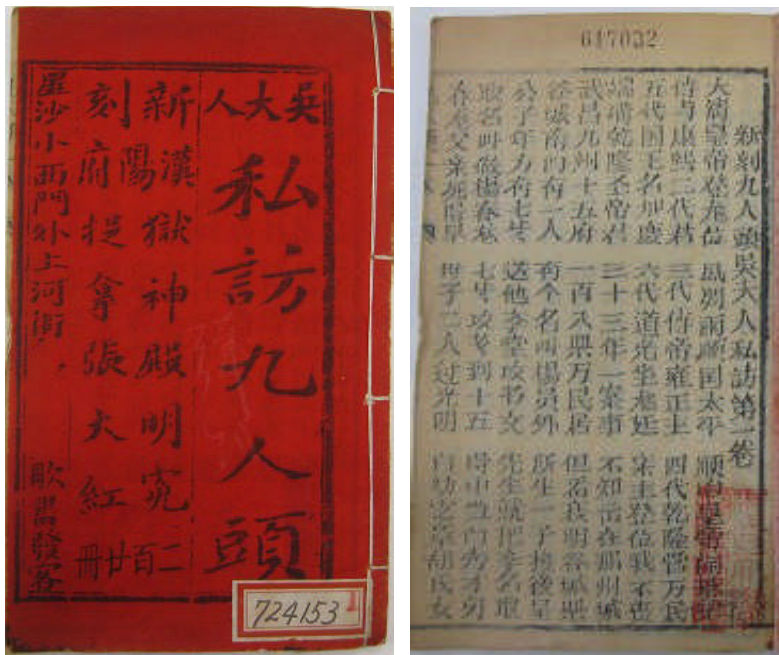 吳大人
私訪九人頭
新刻
漢陽府捉拿張大紅
獄神殿明寃
二百廿冊
星沙小西門外上河街，
歌書發客
724153
617032
新刻九人頭吳大人私訪第一卷
大清皇帝登龙位 風別雨顺囯太平 順治皇帝開基
傳与康熙二代君 三代傳帝雍正主 四代乾隆管万民
五代囯王名加慶 六代道光坐龙廷 宋主登位我不言
乾隆圣帝君 三十三年一案事 不知出在那州城
武昌九州十五府 一百八県万民居 但 良明容城県
容城南门有一人 有个名叫楊員外 所生一子接後
公子年方有七岁 送他 堂攻书文 先生就把学名取
取名叫做楊春茂 七岁攻书到十五 得中 秀才
父亲死得早 母子二人过光明 自幼定亲胡氏女